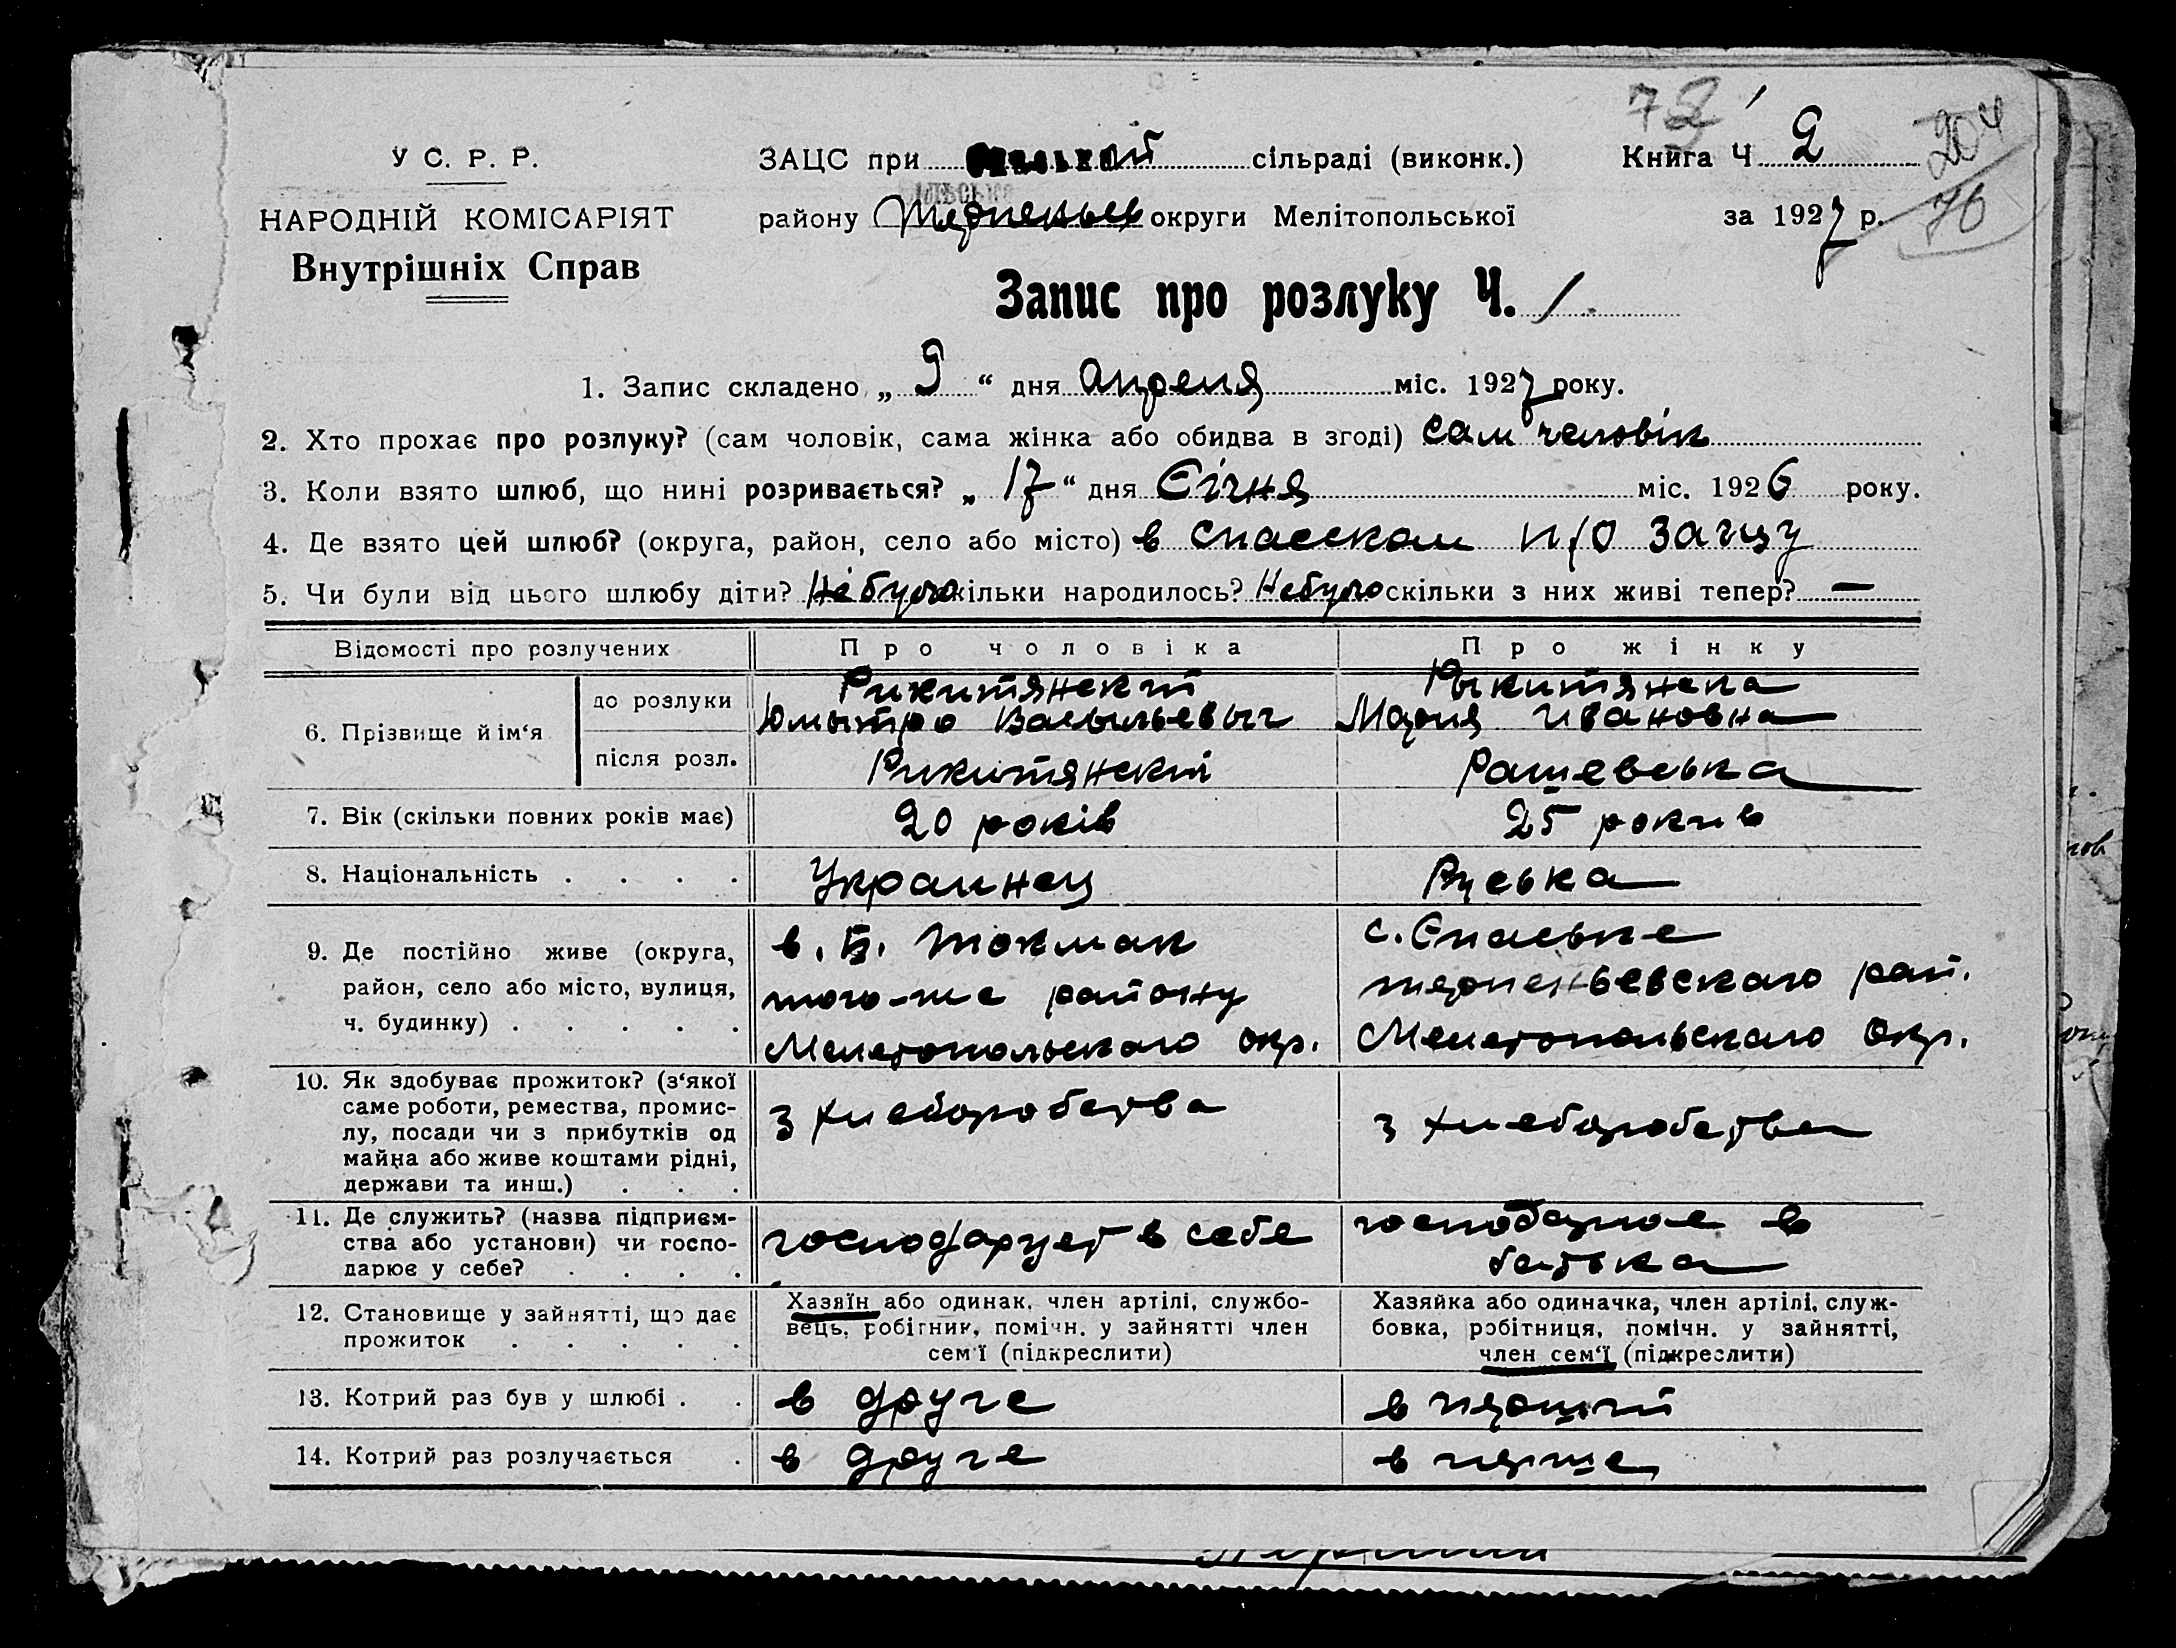 У С. Р. Р.
НАРОДНІЙ КОМІСАРІЯТ
Внутрішніх Справ
ЗАЦС при сільраді (виконк.)
району Терпеньев округи Мелітопольської
Книга Ч 2
за 1927 р.
204
76
Запис про розлуку Ч. 1
1. Запис складено „ 9 “ дня апреля міс. 1927 року.
2. Хто прохає про розлуку? (сам чоловік, сама жінка або обидва в згоді) сам человік
3. Коли взято шлюб, що нині розривається? „ 17 “ дня Січня міс. 1926 року.
4. Де взято цей шлюб? (округа, район, село або місто) в Спасском п/о Загцу
5. Чи були від цього шлюбу діти? Небуло скільки народилось? Небуло скільки з них живі тепер? —
Відомості про розлучених Про чоловіка Про жінку
6. Прізвище й ім‘я
до розлуки Рикитянский Рыкитянска
Юмытро Васыльевыч Мария Ивановна
після розл. Рикитянский Рашевська
7. Вік (скільки повних років має) 20 років 25 рокив
8. Національність . . . . Украинец Руська
9. Де постійно живе (округа, район, село або місто, вулиця, ч. будинку) . . . . .
в. Б. Токмак
того-же району
Мелетопольского окр.
с. Спаське
терпеньевского рай.
Мелетопольского окр.
10. Як здобуває прожиток? (з‘якої
саме роботи, ремества, промис-
лу, посади чи з прибутків од
майна або живе коштами рідні,
держави та инш.) . . .
з хлеборобства
з хлеборобства
11. Де служить? (назва підприєм-
ства або установи) чи госпо-
дарює у себе? . . . .
господарует в себе
господарює в
батька
12. Становище у зайнятті, що дає
прожиток . . . . .
Хазяїн або одинак, член артілі, службо-
вець, робітник, помічн. у зайнятті член
сем‘ї (підкреслити)
Хазяйка або одиначка, член артілі, служ-
бовка, робітниця, помічн. у зайнятті,
член сем‘ї (підкреслити)
13. Котрий раз був у шлюбі . . в друге в перший
14. Котрий раз розлучається . в друге в перше